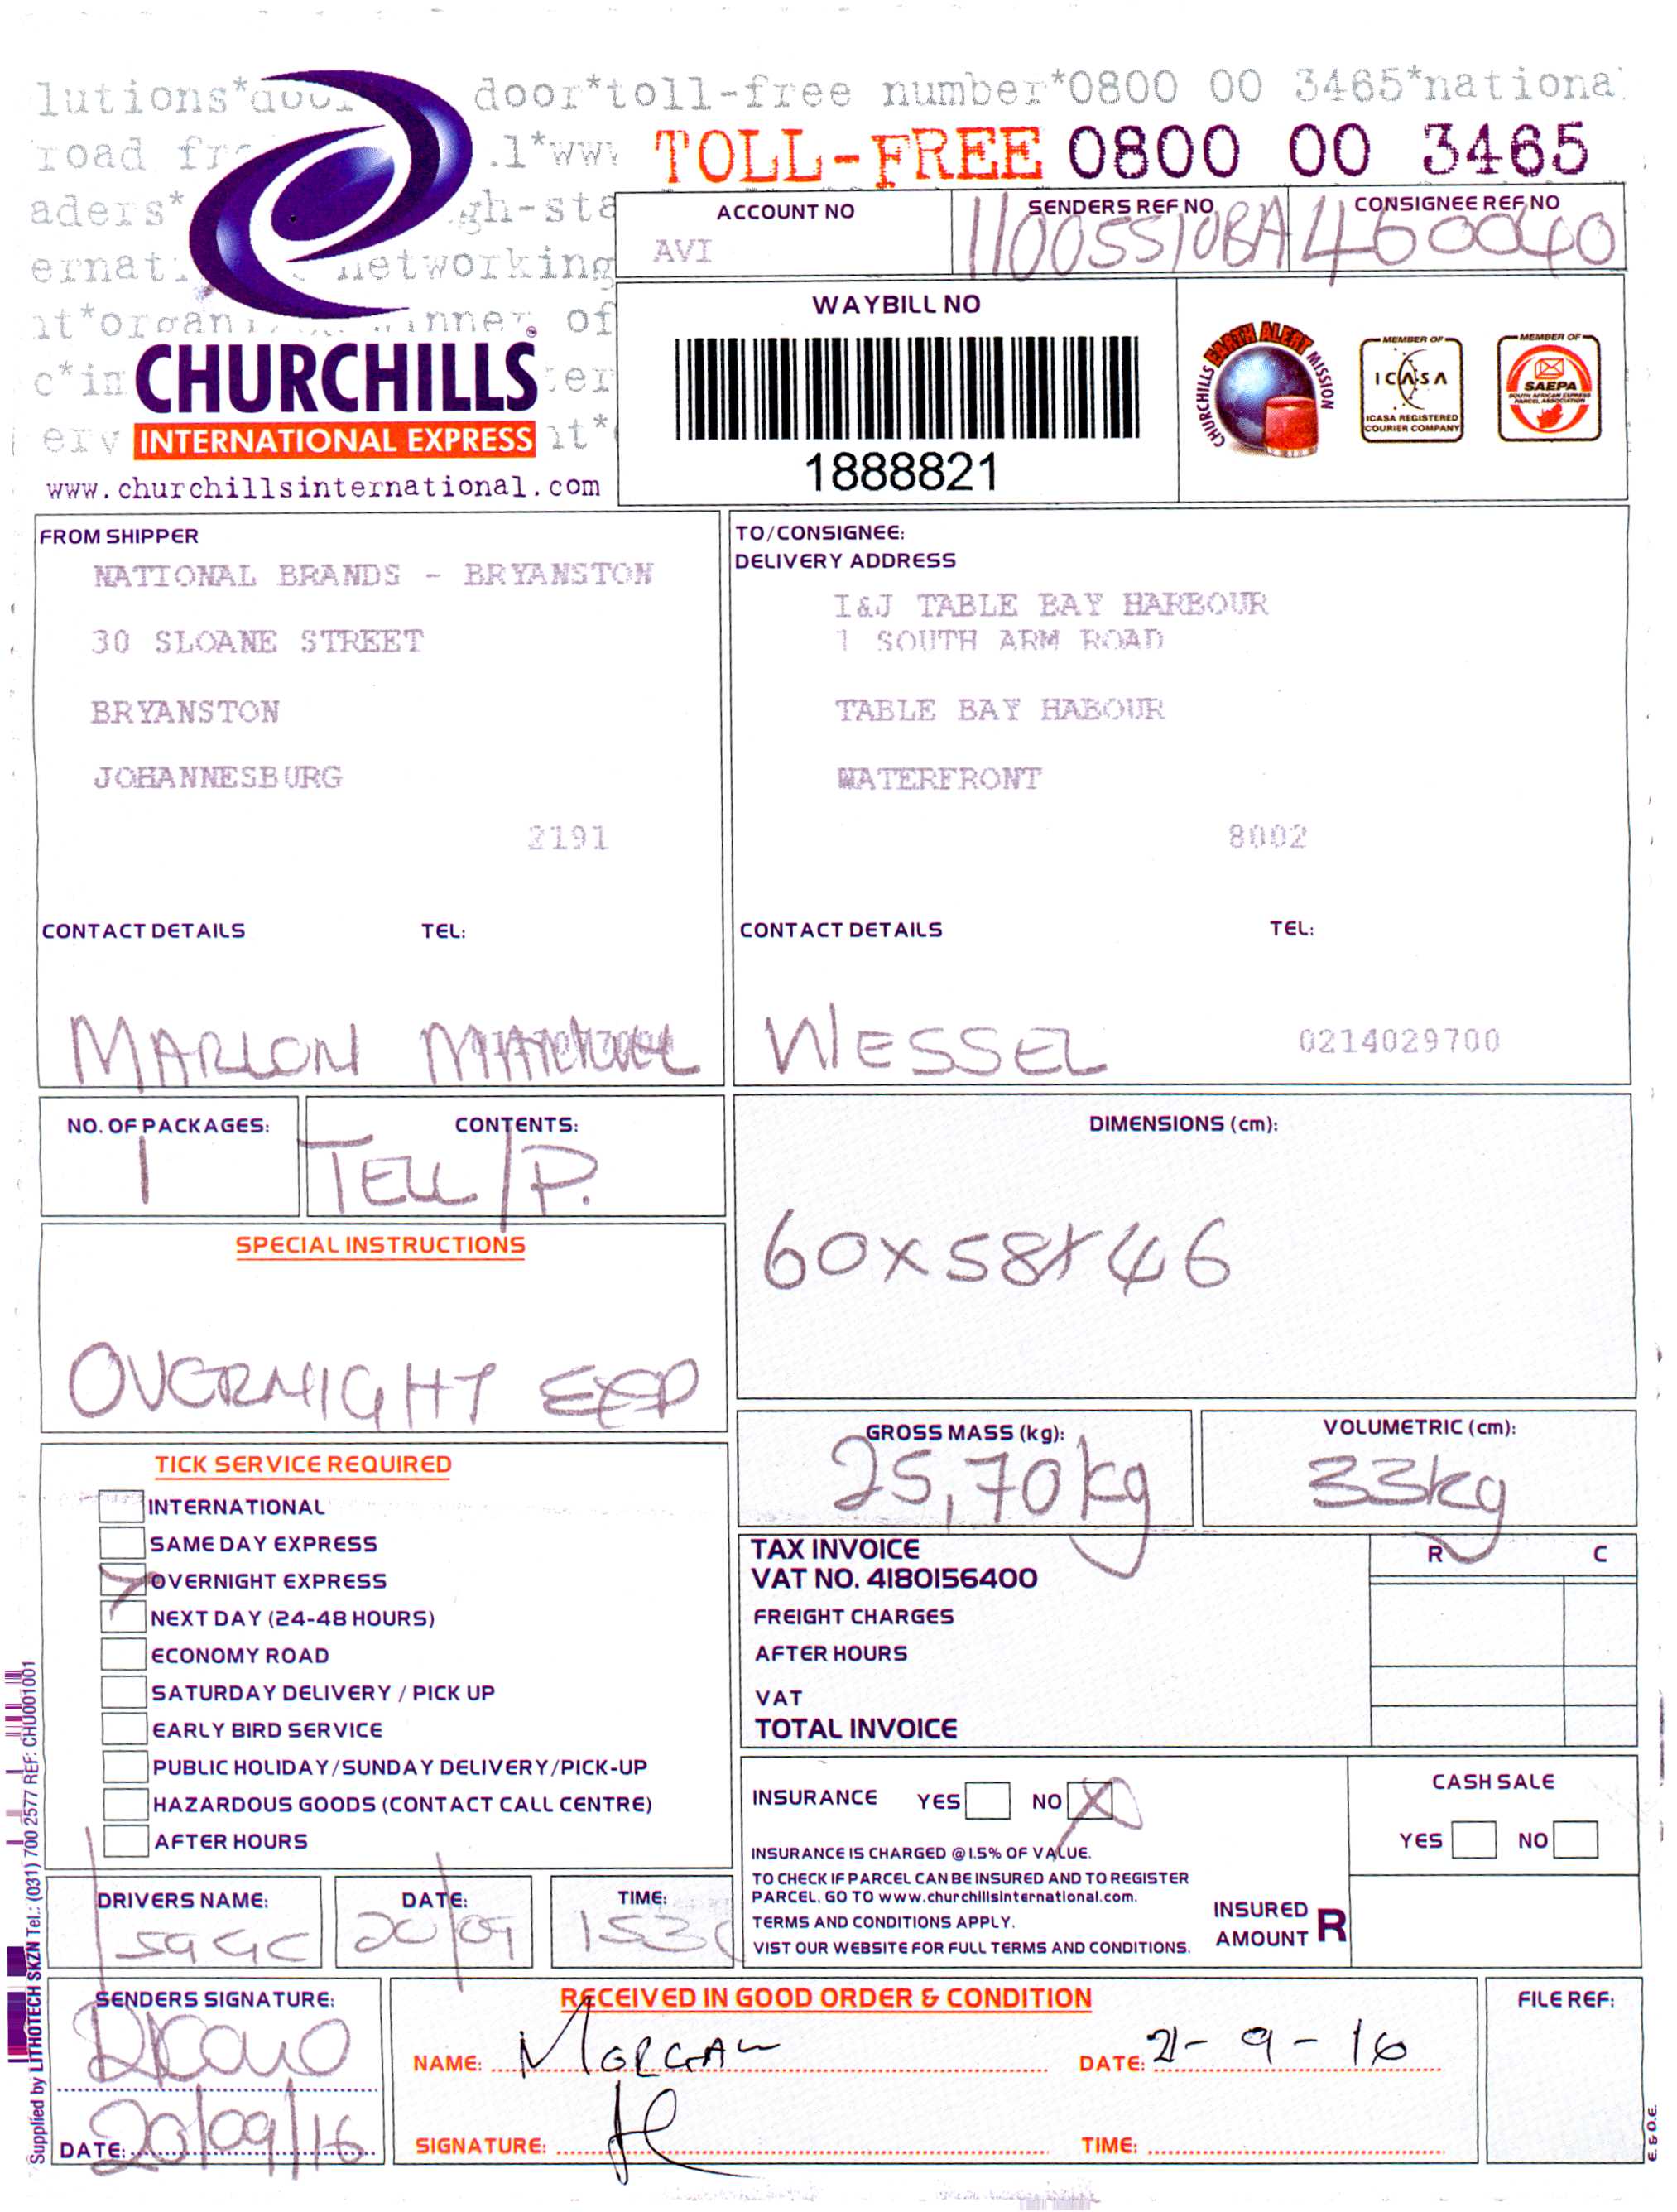 lutions* door*toll-free number*0800 00 3465*nationa
road .l*www TOLL-FREE 0800 00 3465
aders* gh-sta
ACCOUNT NO SENDERS REF NO CONSIGNEE REF NO
AVI
networking
of
CHURCHILLS
INTERNATIONAL EXPRESS
www.churchillsinternational.com
WAYBILL NO
1888821
CHURCHILLS EARTH ALERT MISSION
MEMBER OF
ICASA
ICASA REGISTERED
COURIER COMPANY
MEMBER OF
SAEPA
SOUTH AFRICAN EXPRESS
PARCEL ASSOCIATION
FROM SHIPPER
NATIONAL BRANDS - BRYANSTON
30 SLOANE STREET
BRYANSTON
JOHANNESBURG
2191
CONTACT DETAILS TEL:
MARLON
TO/CONSIGNEE:
DELIVERY ADDRESS
I&J TABLE BAY HARBOUR
1 SOUTH ARM ROAD
TABLE BAY HABOUR
WATERFRONT
8002
CONTACT DETAILS TEL:
WESSEL 0214029700
NO. OF PACKAGES: CONTENTS:
1 TELL/P.
DIMENSIONS (cm):
60x58x46
SPECIAL INSTRUCTIONS
OVERNIGHT EXP
GROSS MASS (kg): VOLUMETRIC (cm):
25,70kg 33kg
TICK SERVICE REQUIRED
INTERNATIONAL
SAME DAY EXPRESS
OVERNIGHT EXPRESS
NEXT DAY (24-48 HOURS)
ECONOMY ROAD
SATURDAY DELIVERY / PICK UP
EARLY BIRD SERVICE
PUBLIC HOLIDAY/SUNDAY DELIVERY/PICK-UP
HAZARDOUS GOODS (CONTACT CALL CENTRE)
AFTER HOURS
TAX INVOICE R C
VAT NO. 4180156400
FREIGHT CHARGES
AFTER HOURS
VAT
TOTAL INVOICE
INSURANCE YES NO X
INSURANCE IS CHARGED @ 1.5% OF VALUE.
TO CHECK IF PARCEL CAN BE INSURED AND TO REGISTER
PARCEL. GO TO www.churchillsinternational.com.
TERMS AND CONDITIONS APPLY.
VIST OUR WEBSITE FOR FULL TERMS AND CONDITIONS.
INSURED
AMOUNT R
CASH SALE
YES NO
DRIVERS NAME: DATE: TIME:
20/09 1530
SENDERS SIGNATURE:
DATE: 20/09/16
RECEIVED IN GOOD ORDER & CONDITION
NAME: MORGAN DATE: 21-9-16
SIGNATURE: TIME:
FILE REF:
E. & O.E.
Supplied by LITHOTECH SKZN Tel.: (031) 700 2577 REF: CHU001001